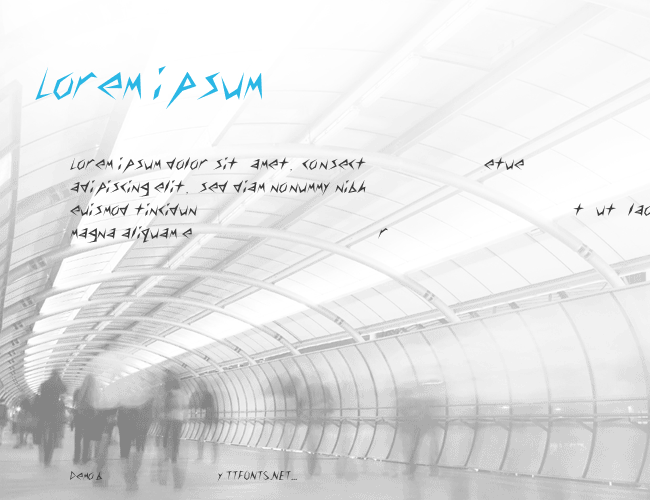 Lorem ipsum
Lorem ipsum dolor sit amet, consect etue
adipiscing elit, sed diam nonummy nibh
euismod tincidun t ut lao
magna aliquam e r
Demo b y TTFONTS.NET_